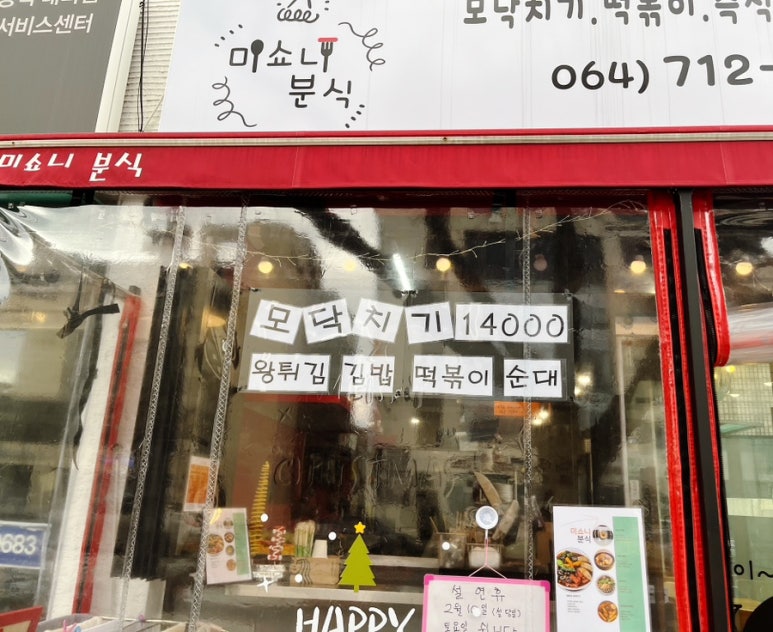 서비스센터
모닥치기.떡볶이.즉석
미쇼니
분식
064) 712-
미쇼니 분식
모닥치기 14000
왕튀김 김밥 떡볶이 순대
CHRISTMAS
9683
미쇼니
분식
HAPPY
설 연휴
2월
토요일 쉽니다